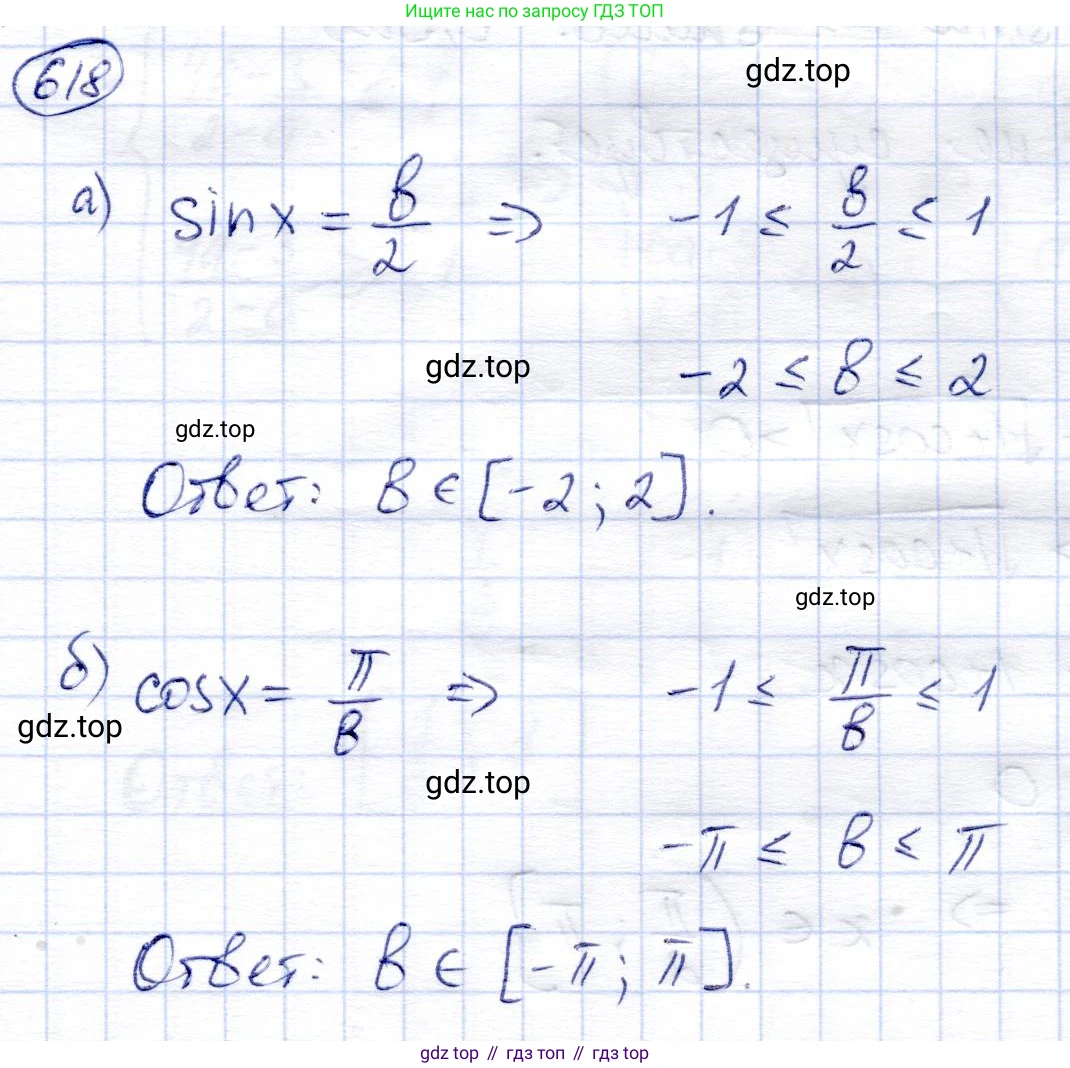 Ищите нас по запросу ГДЗ ТОП
618
gdz.top
а) sin x = в/2 => -1 ≤ в/2 ≤ 1
gdz.top
-2 ≤ в ≤ 2
gdz.top
Ответ: в ∈ [-2; 2].
gdz.top
б) cos x = π/в => -1 ≤ π/в ≤ 1
gdz.top
gdz.top
-π ≤ в ≤ π
Ответ: в ∈ [-π; π].
gdz top // гдз топ // гдз top